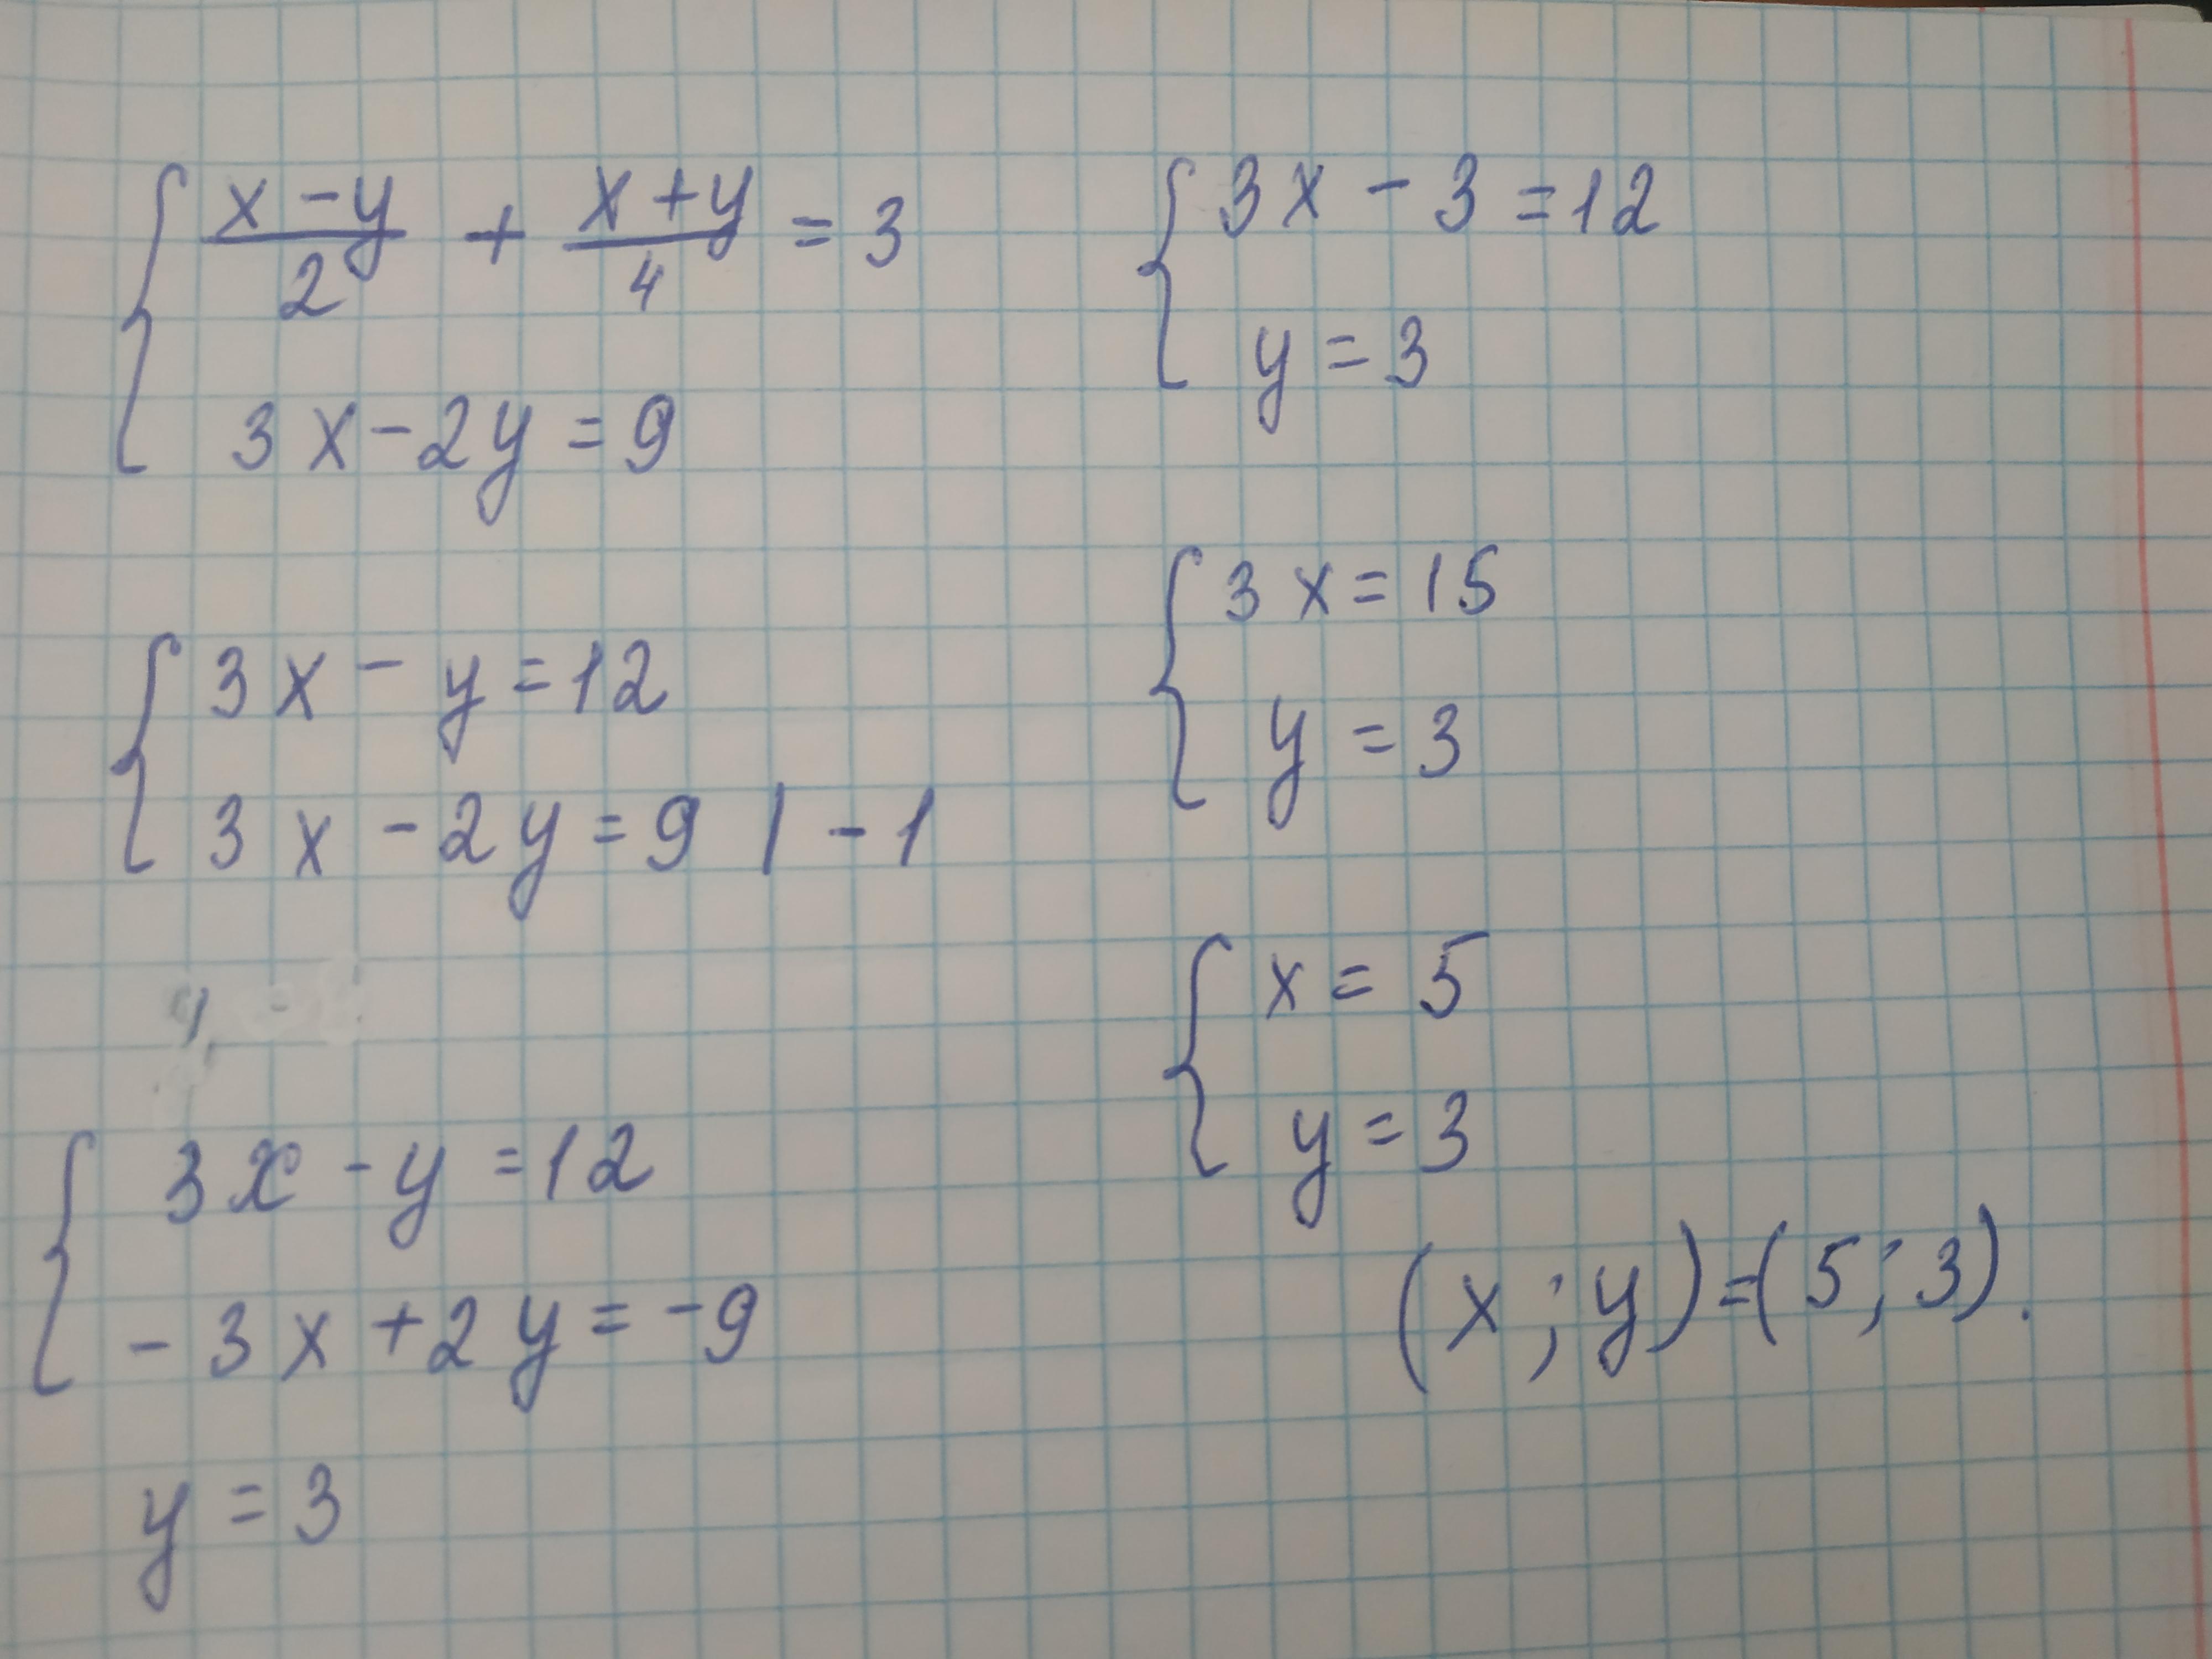 x - y / 2 + x + y / 4 = 3
3x - 2y = 9
3x - y = 12
3x - 2y = 9 | - 1
3x - y = 12
- 3x + 2y = - 9
y = 3
3x - 3 = 12
y = 3
3x = 15
y = 3
x = 5
y = 3
(x ; y) = (5 ; 3).